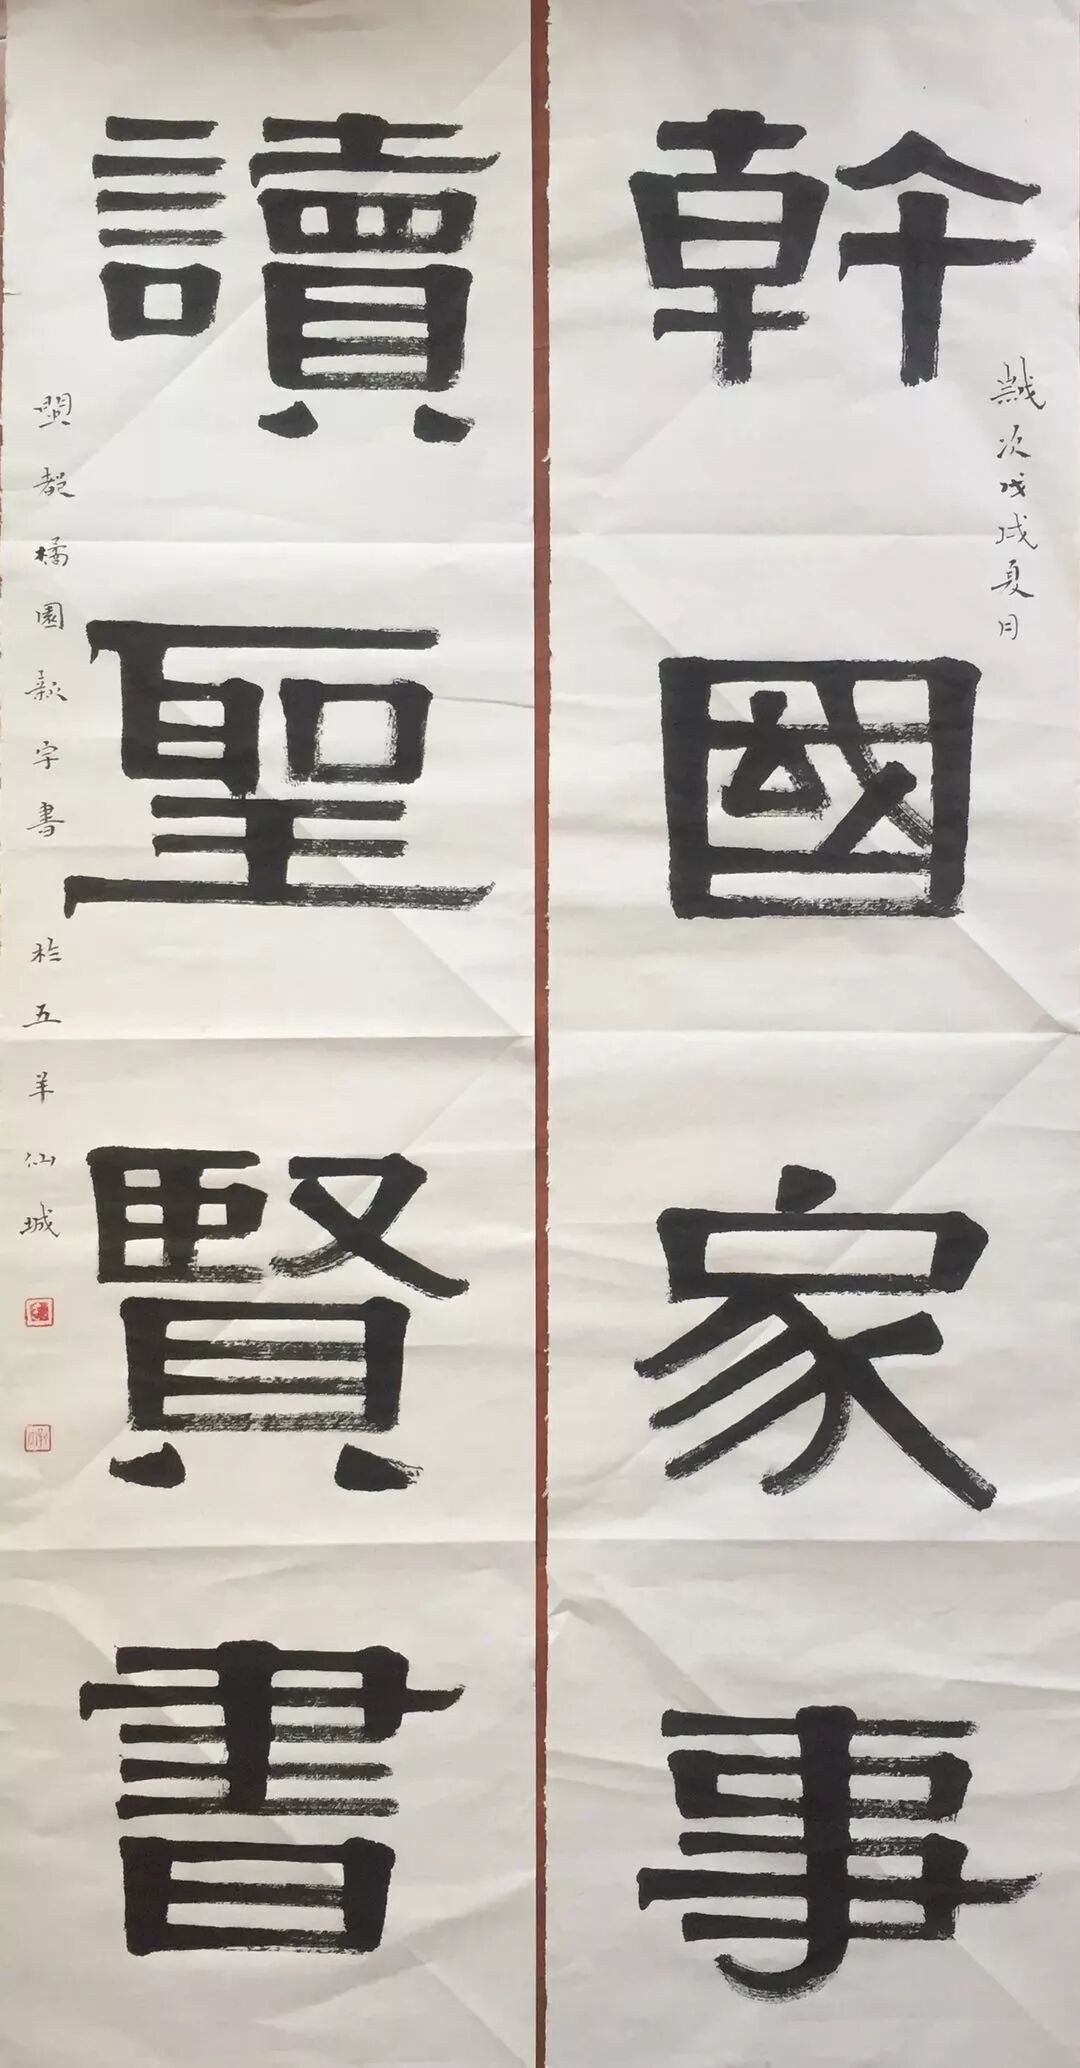 幹國家事
歲次戊戌夏月
讀聖賢書
橘園 字書於五羊仙城